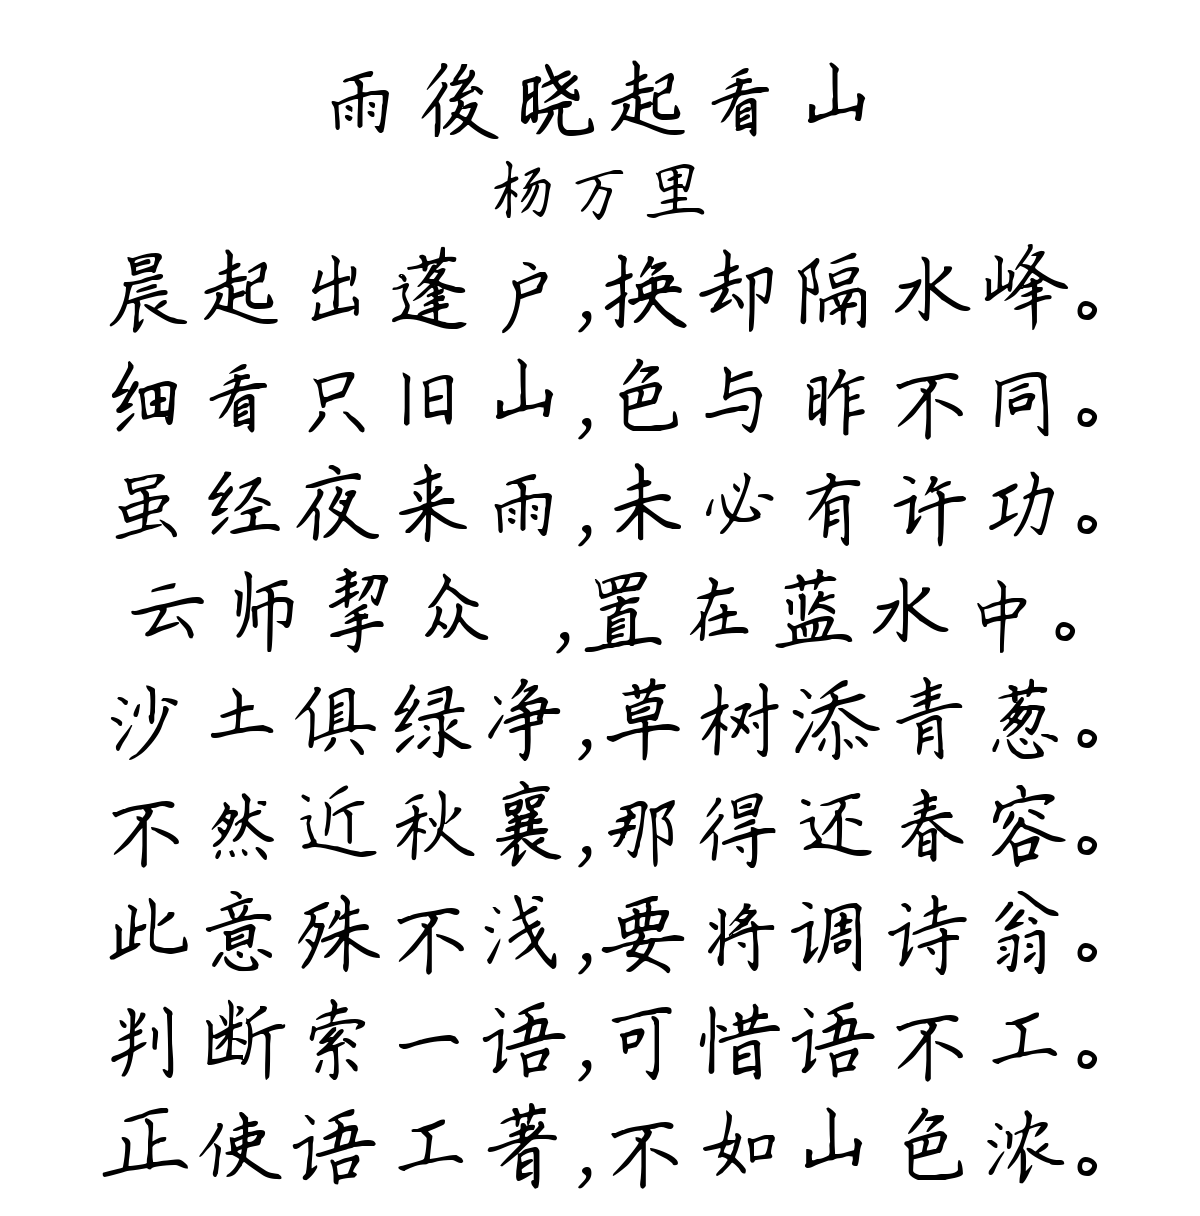 雨後晓起看山
杨万里
晨起出蓬户,换却隔水峰。
细看只旧山,色与昨不同。
虽经夜来雨,未必有许功。
云师挈众 ,置在蓝水中。
沙土俱绿净,草树添青葱。
不然近秋襄,那得还春容。
此意殊不浅,要将调诗翁。
判断索一语,可惜语不工。
正使语工著,不如山色浓。